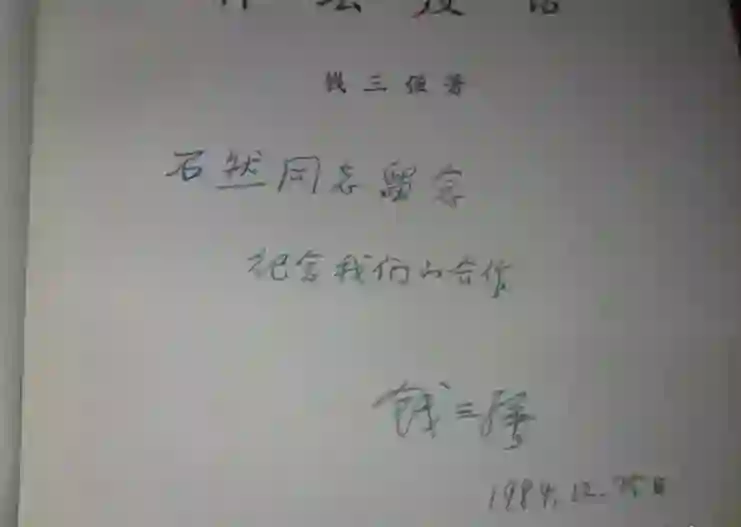 钱三强著
石然同志留念
纪念我们的合作
钱三强
1984.12.25日